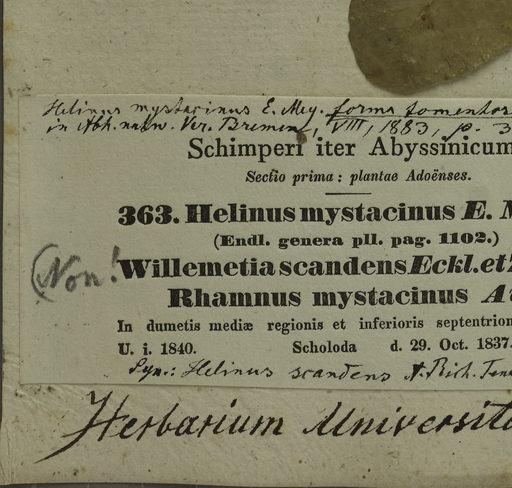 Helinus mystacinus E. Mey. forma tomentos
in Abh. natw. Ver. Bremen, VIII, 1883, p. 3
Schimperi iter Abyssinicum
Sectio prima: plantae Adoënses.
363. Helinus mystacinus E. M
(Endl. genera pll. pag. 1102.)
(Non!
Willemetia scandens Eckl. et Z
Rhamnus mystacinus A
In dumetis mediæ regionis et inferioris septentrion
U. i. 1840. Scholoda d. 29. Oct. 1837.
Syn.: Helinus scandens A. Rich. Ten
Herbarium Universita